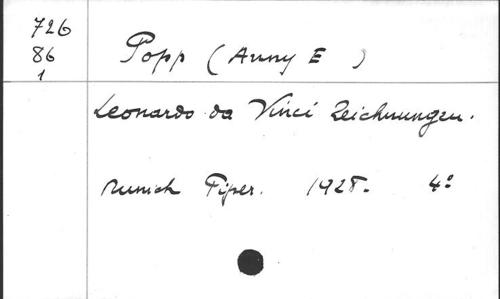 726
86
1
Popp (Anny E )
Leonardo da Vinci Zeichnungen.
Munich Piper. 1928. 4º